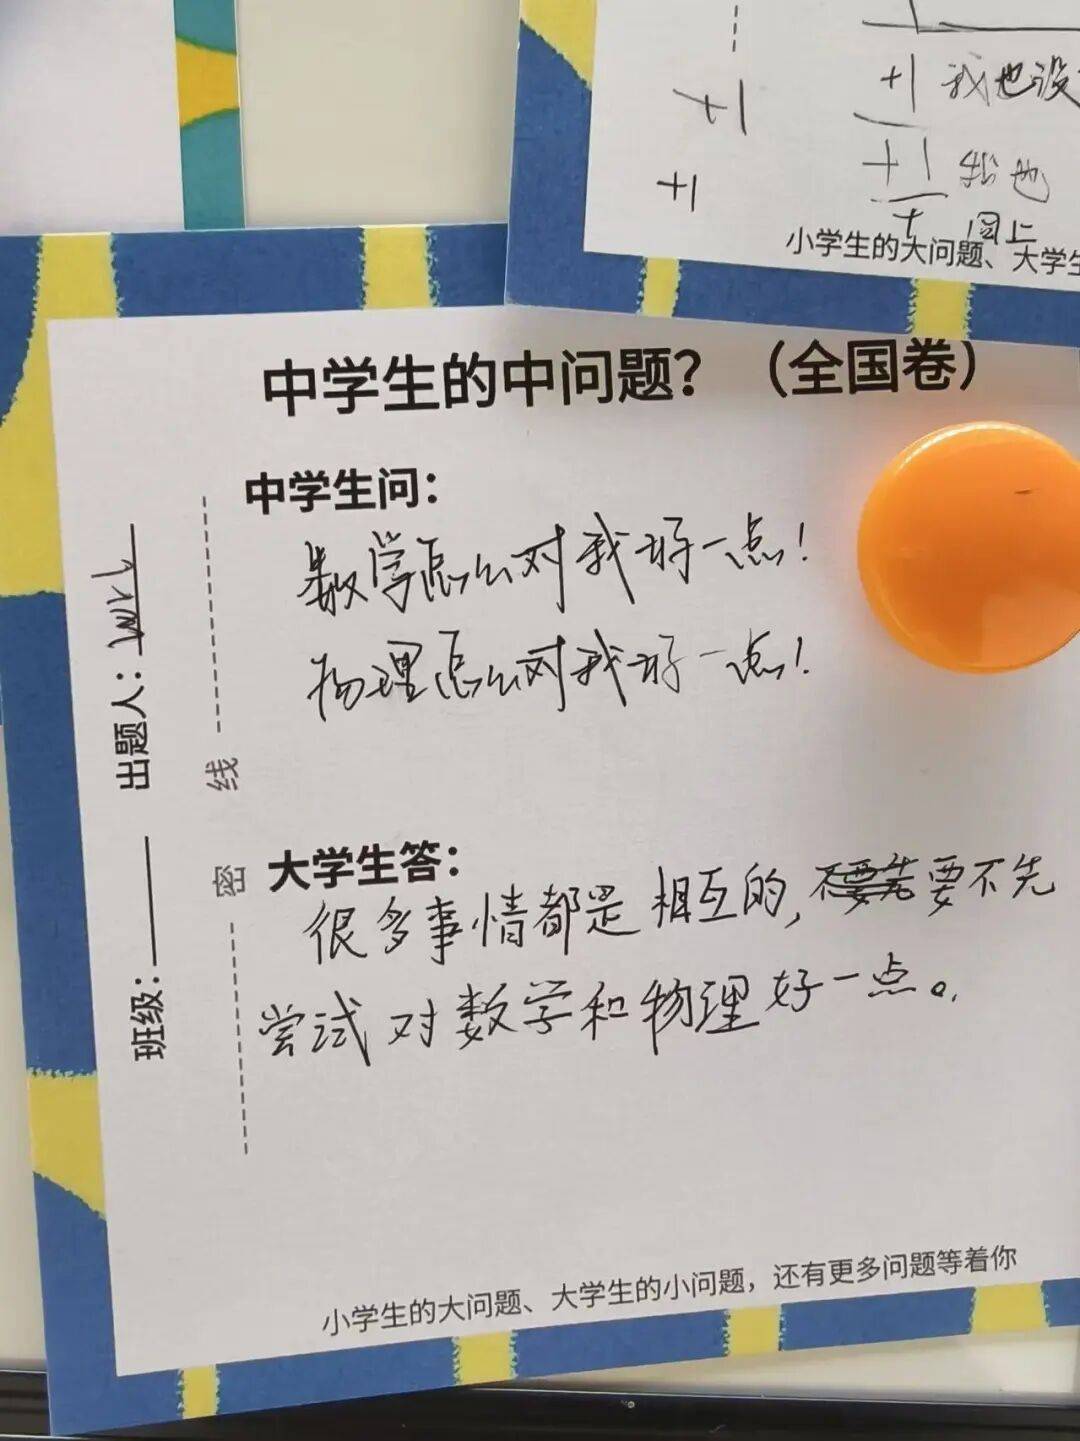 +1 我也没
+1
+1 我也
+1
图上
小学生的大问题、大学生
中学生的中问题？（全国卷）
中学生问：
数学怎么对我好一点！
物理怎么对我好一点！
大学生答：
很多事情都是相互的，不要先要不先
尝试对数学和物理好一点。
小学生的大问题、大学生的小问题，还有更多问题等着你
班级： 出题人：
密 线